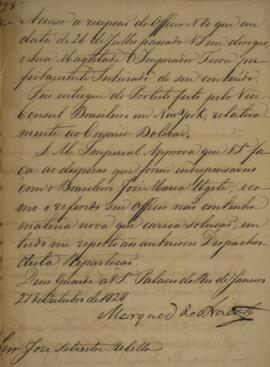 Accuso a recepção do Officio N.º que em
data de 26 de Julho passado V S me dirigio
e Sua Magestade O Imperador Ficou per
feitamente Inteirado do seu contheúdo.
Fico entregue do Protesto feito pelo Vice
Consul Brasileiro em New York, relativa
mente ao Corsario Bolivar.
S. M. Imperial Approva que V S fa
ça as despezas que forem indispensaveis
com o Brasileiro José Maria, e co
mo o referido seu Officio não contenha
materia nova que careça solução, em
tudo me reporto aos anteriores Despachos
desta Repartição.
Deos Guarde a V S Palacio do Rio de Janeiro
27 de Outubro de 1828
Marquez de Aracaty
Snr José Silvestre Rebello